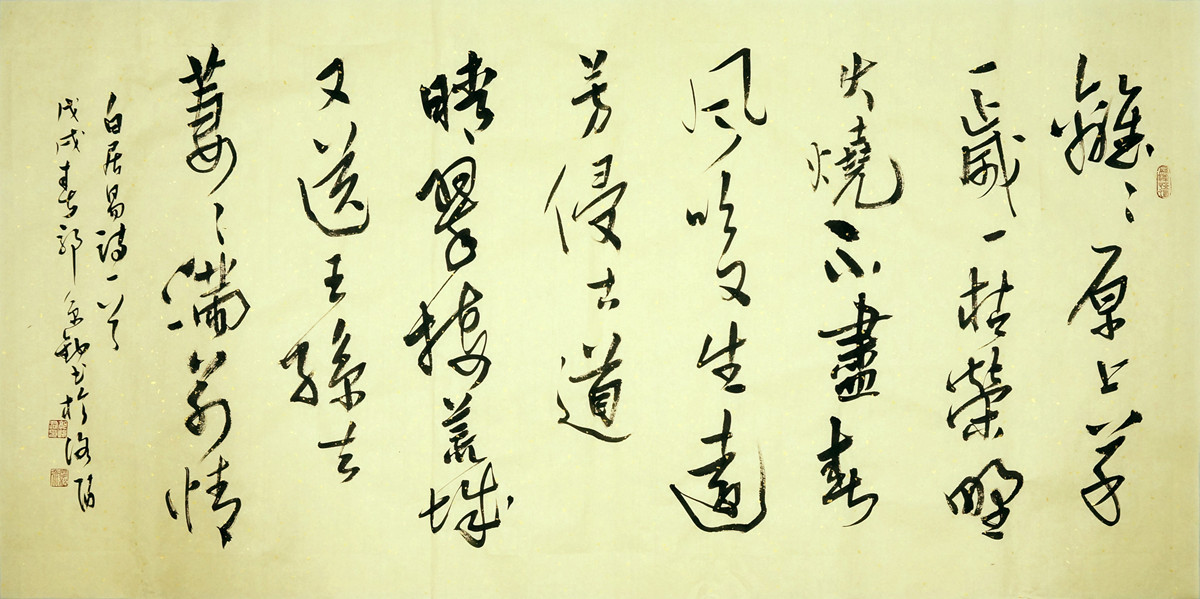 離〻原上草
一歲一枯榮野
火燒不盡春
風吹又生遠
芳侵古道
晴〻翠接荒城
又送王孫去
萋〻滿別情
白居易詩一首
戊戌春郭書於洛陽